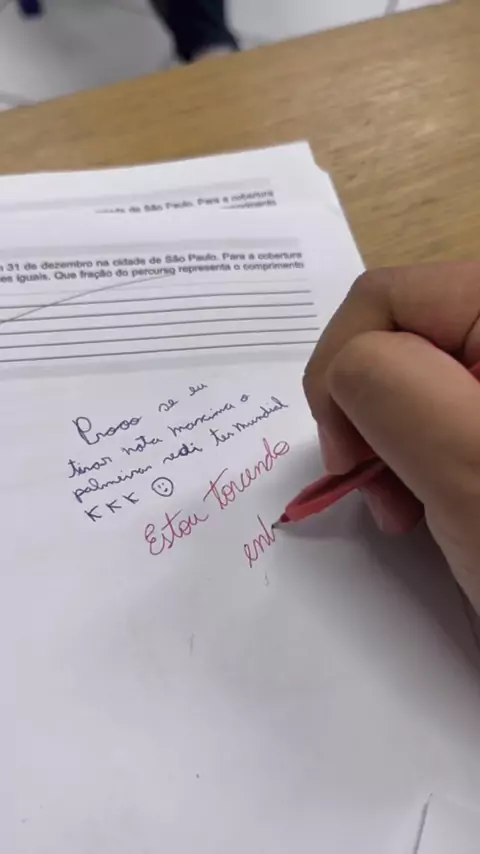 dade de São Paulo. Para a cobertura
comprimento
31 de dezembro na cidade de São Paulo. Para a cobertura
es iguais. Que fração do percurso representa o comprimento
Prooo se eu
tirar nota maxima o
palmeiras ter mundial
KKK
Estou torcendo
ent